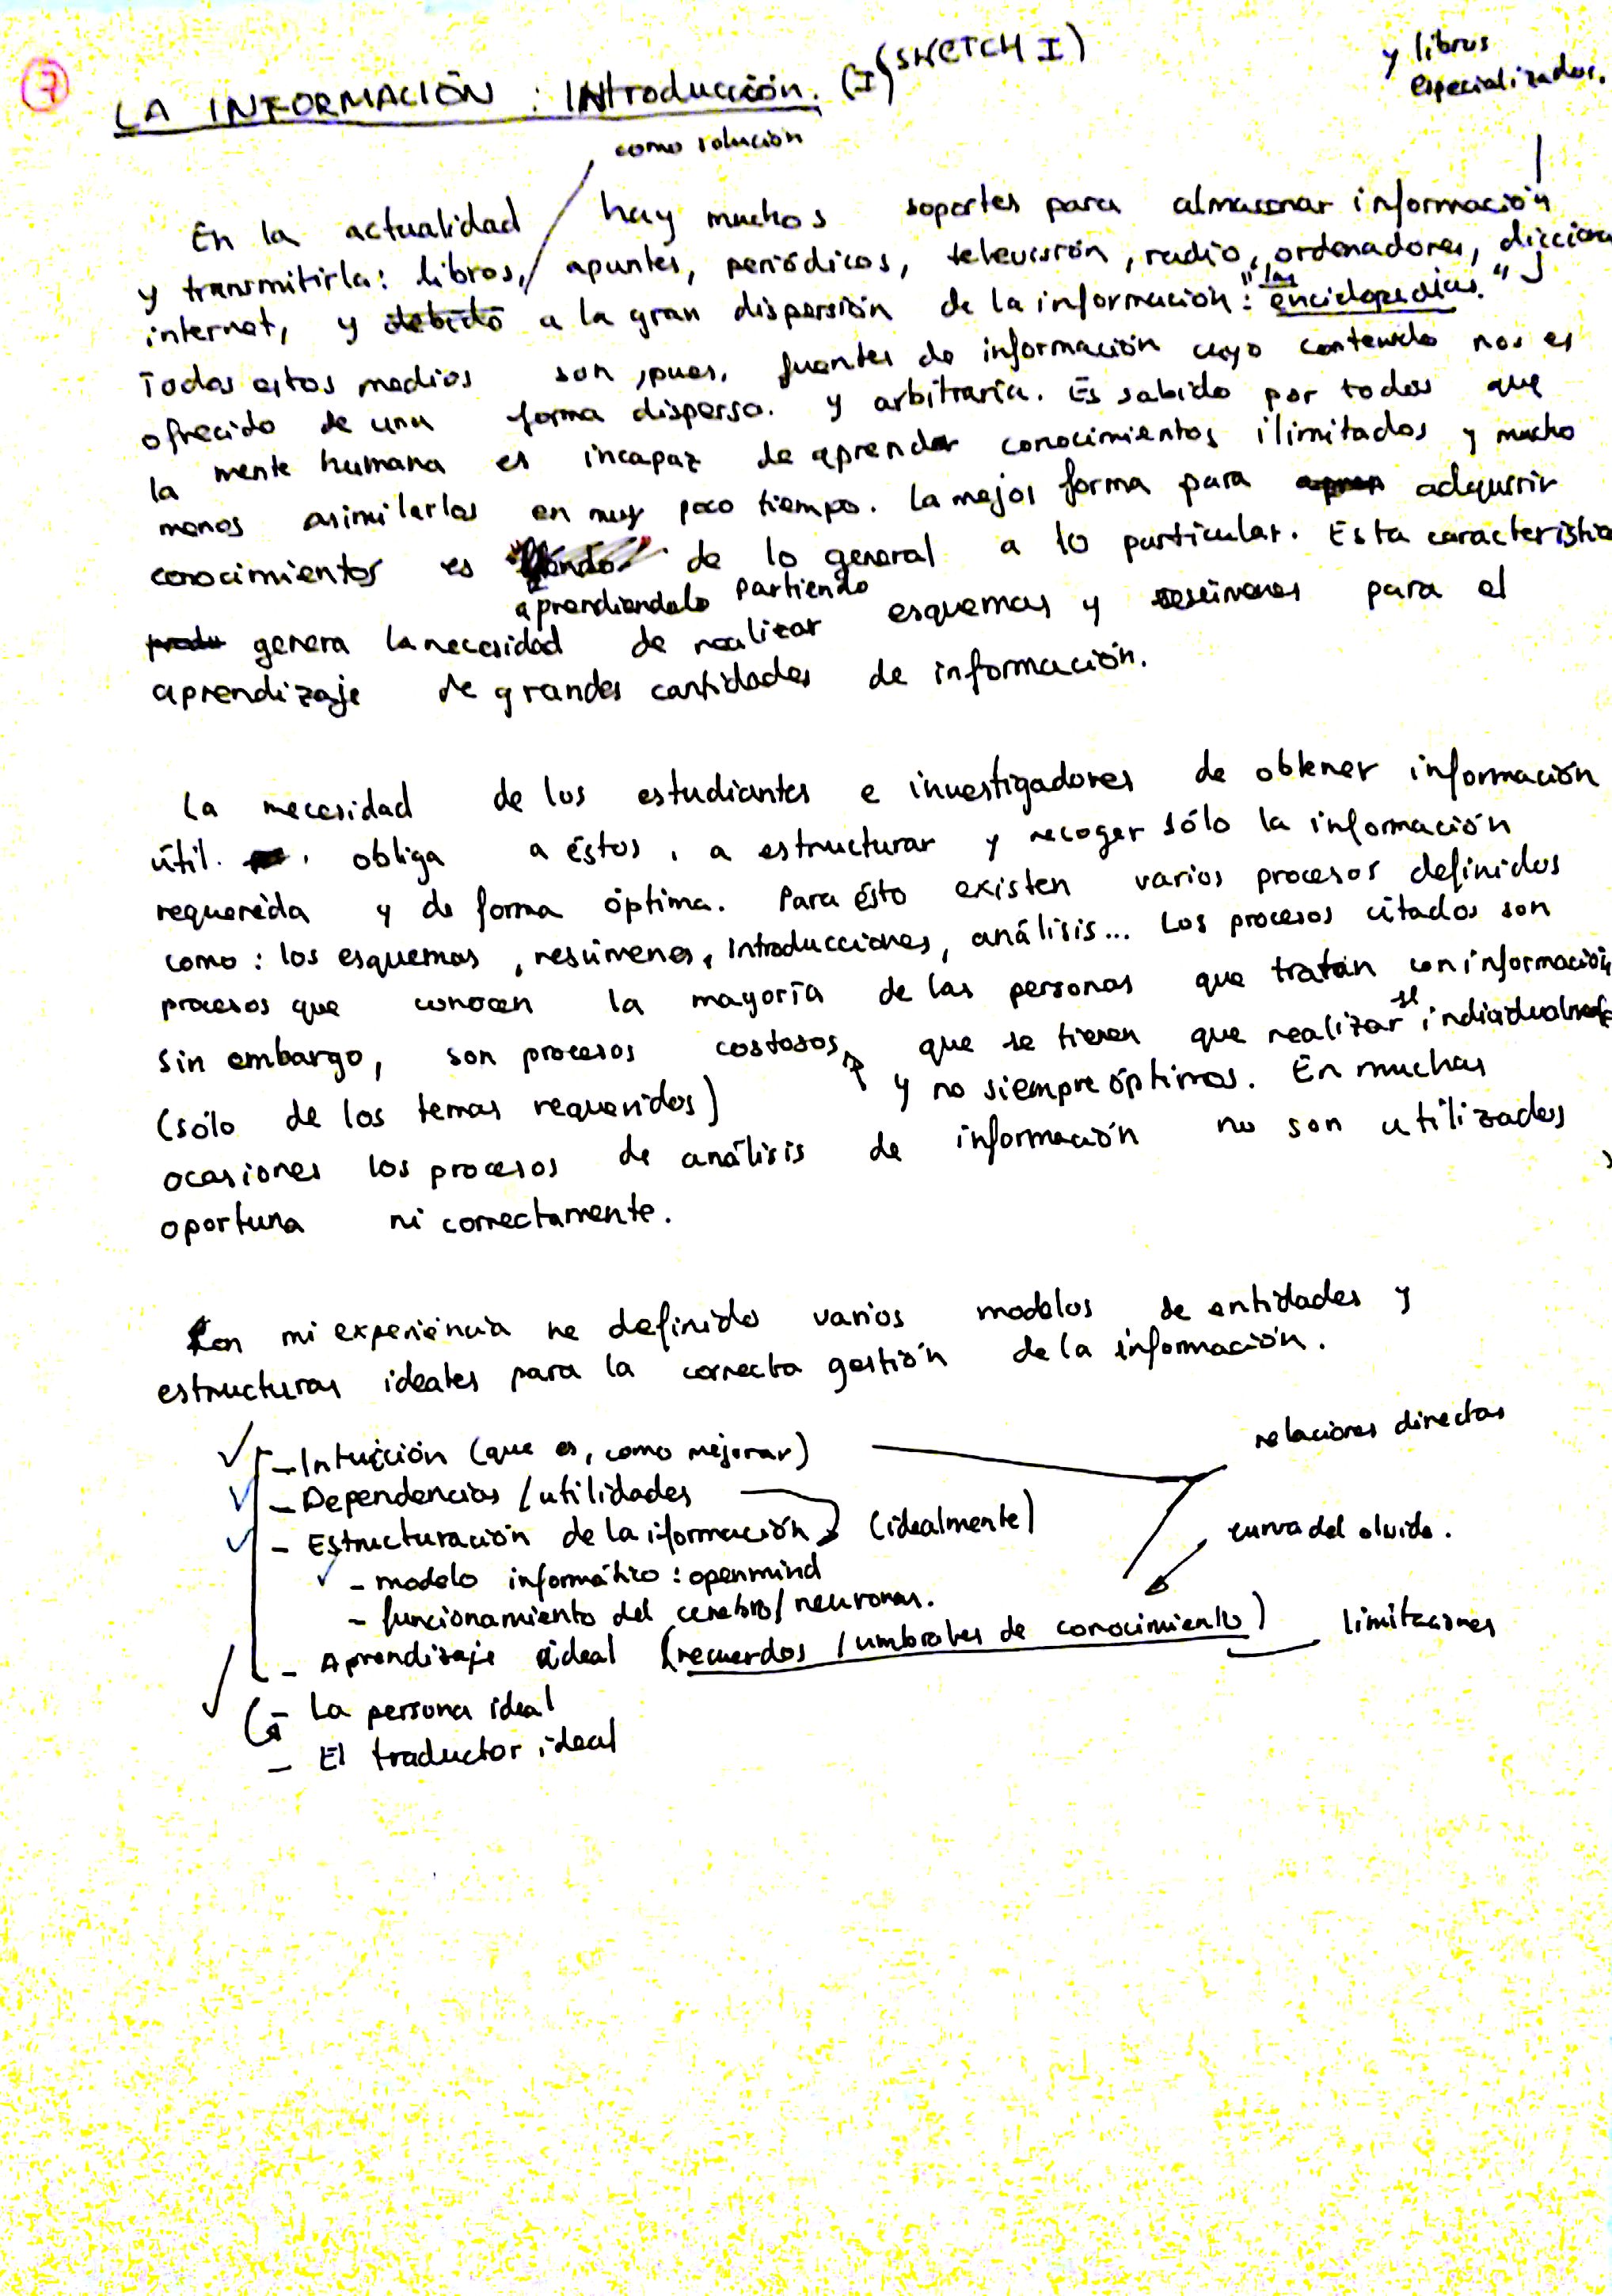 7
LA INFORMACIÓN : INtroducción. (I) (SKETCH I)
y libros
especializados.
como solución
En la actualidad hay muchos soportes para almasenar información
y transmitirla: libros, apuntes, periódicos, televisión, radio, ordenadores, diccion
internet, y debido a la gran dispersión de la información: "las enciclopedias."
Todos estos medios son, pues, fuentes de información cuyo contenido nos es
ofrecido de una forma dispersa. y arbitraria. Es sabido por todos que
la mente humana es incapaz de aprender conocimientos ilimitados y mucho
menos asimilarlos en muy poco tiempo. La mejor forma para adquirir
conocimientos es de lo general a lo particular. Esta caracteristica
aprendiendolo partiendo
genera la necesidad de realizar esquemas y resúmenes para el
aprendizaje de grandes cantidades de información.
La necesidad de los estudiantes e investigadores de obtener información
útil. obliga a éstos, a estructurar y recoger sólo la información
requerida y de forma óptima. Para ésto existen varios procesos definidos
como: los esquemas, resúmenes, introducciones, análisis... Los procesos citados son
procesos que conocen la mayoría de las personas que tratan con información
Sin embargo, son procesos costosos, que se tienen que realizar se individualmente
(sólo de los temas requeridos) y no siempre óptimos. En muchas
ocasiones los procesos de análisis de información no son utilizados
oportuna ni correctamente.
Con mi experiencia he definido varios modelos de entidades y
estructuras ideales para la correcta gestión de la información.
- Intuición (que es, como mejorar)
relaciones directas
- Dependencias / utilidades
- Estructuración de la iformación (idealmente)
curva del olvido.
- modelo informático: openmind
- funcionamiento del cerebro/neuronas.
- Aprendizaje ideal (recuerdos / umbrales de conocimiento) limitaciones
- La persona ideal
- El traductor ideal